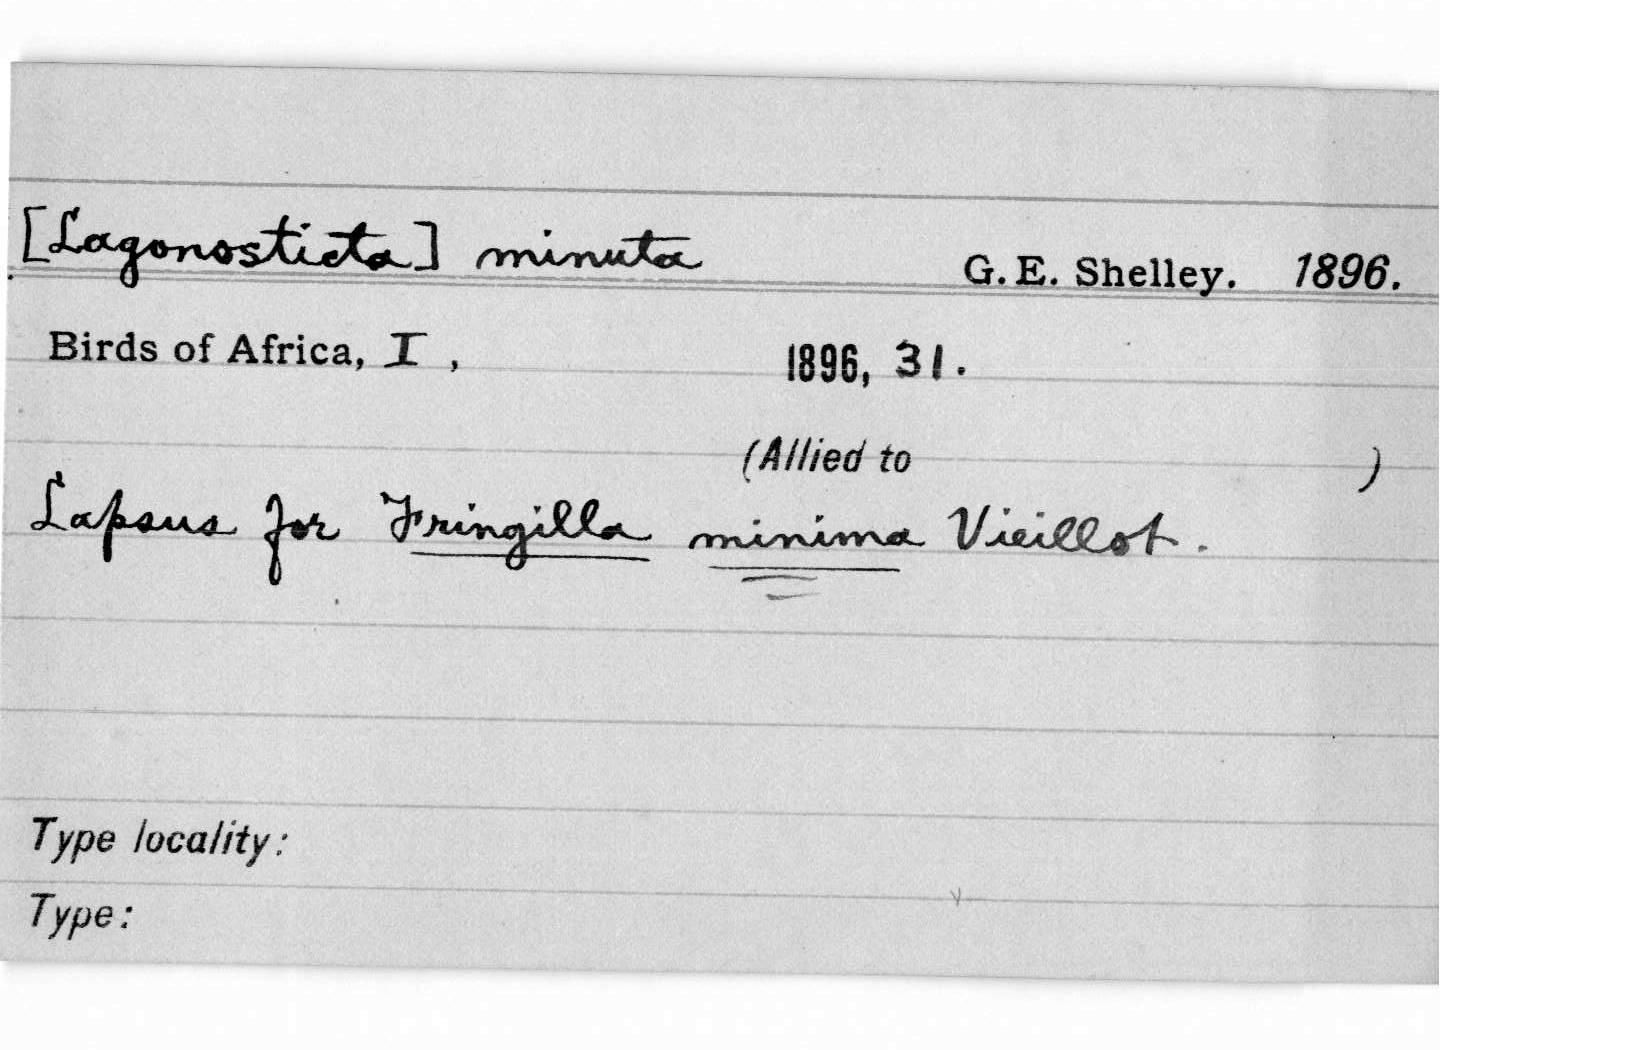 [Lagonosticta] minuta G. E. Shelley. 1896.
Birds of Africa, I , 1896, 31.
(Allied to )
Lapsus for Fringilla minima Vieillot.
Type locality:
Type: